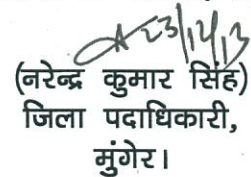 23/12/13
(नरेन्द्र कुमार सिंह)
जिला पदाधिकारी,
मुंगेर।